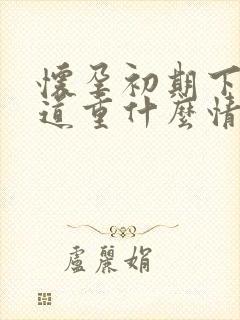 懷孕初期下
道重什麼情
盧麗娟